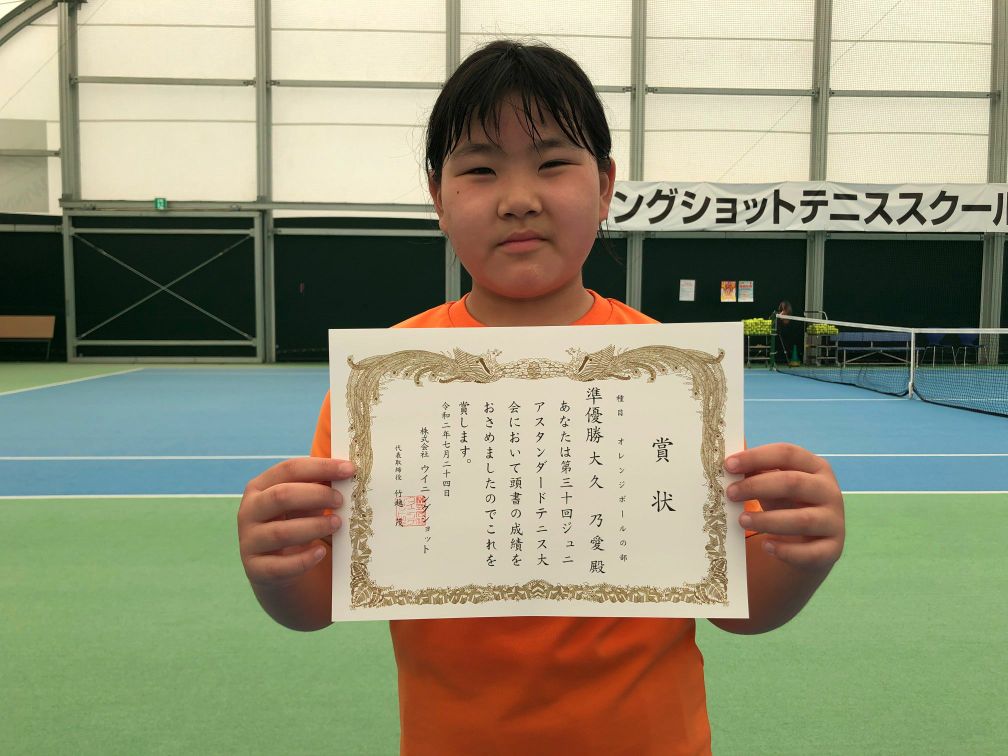 ングショットテニススクール
賞状
種目 オレンジボールの部
準優勝 大久 乃愛 殿
あなたは第三十回ジュニ
アスタンダードテニス大
会において頭書の成績を
おさめましたのでこれを
賞します。
令和二年七月二十四日
株式会社 ウイニングショット
代表取締役 竹越 茂